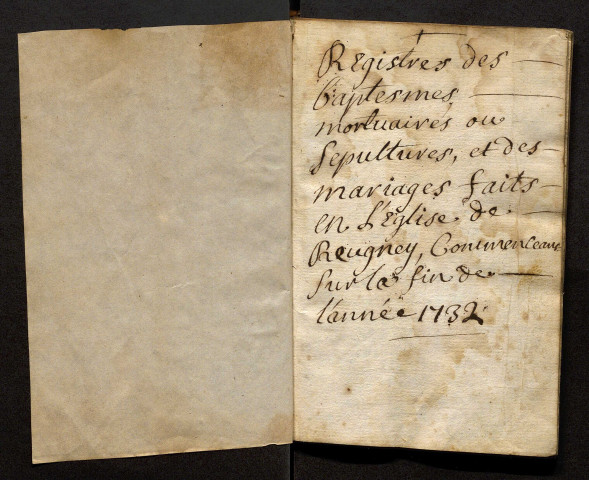 Registres des
baptesmes,
mortuaires ou
Sepultures, et des
mariages faits
en L'Eglise de
Reugney, Commenceant
sur la fin de
l'année 1732